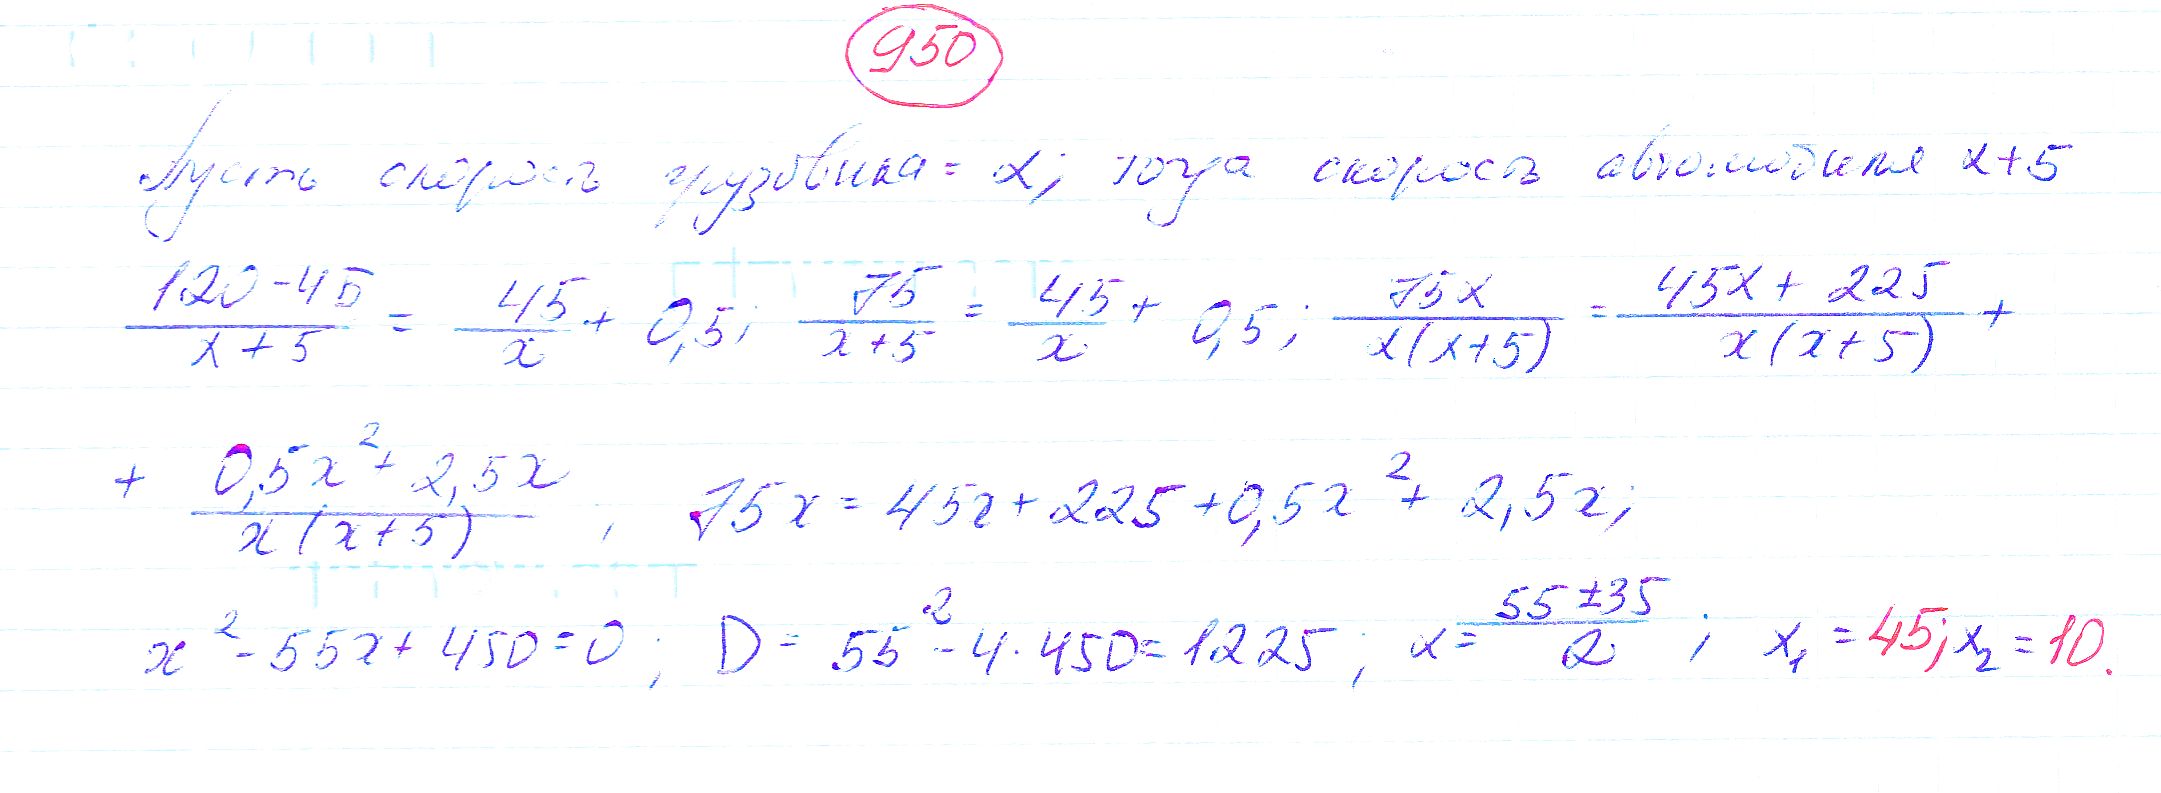 950
Пусть скорость грузовика = x; тогда скорость автомобиля x+5
(120-45)/(x+5) = 45/x + 0,5; 75/(x+5) = 45/x + 0,5; 75x/(x(x+5)) = (45x+225)/(x(x+5)) +
+ (0,5x²+2,5x)/(x(x+5)), 75x = 45x+225+0,5x²+2,5x;
x²-55x+450=0; D = 55²-4·450=1225; x = (55±35)/2; x₁ = 45; x₂ = 10.